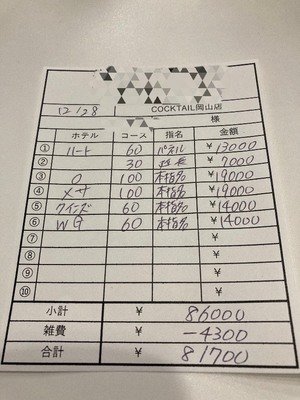 COCKTAIL岡山店
12/28
様
ホテル コース 指名 金額
① ハート 60 パネル ¥13000
② 30 延長 ¥7000
③ O 100 本指名 ¥19000
④ メサ 100 本指名 ¥19000
⑤ クインビ 60 本指名 ¥14000
⑥ WG 60 本指名 ¥14000
⑦ ¥
⑧ ¥
⑨ ¥
⑩ ¥
小計 ¥ 86000
雑費 ¥ -4300
合計 ¥ 81700